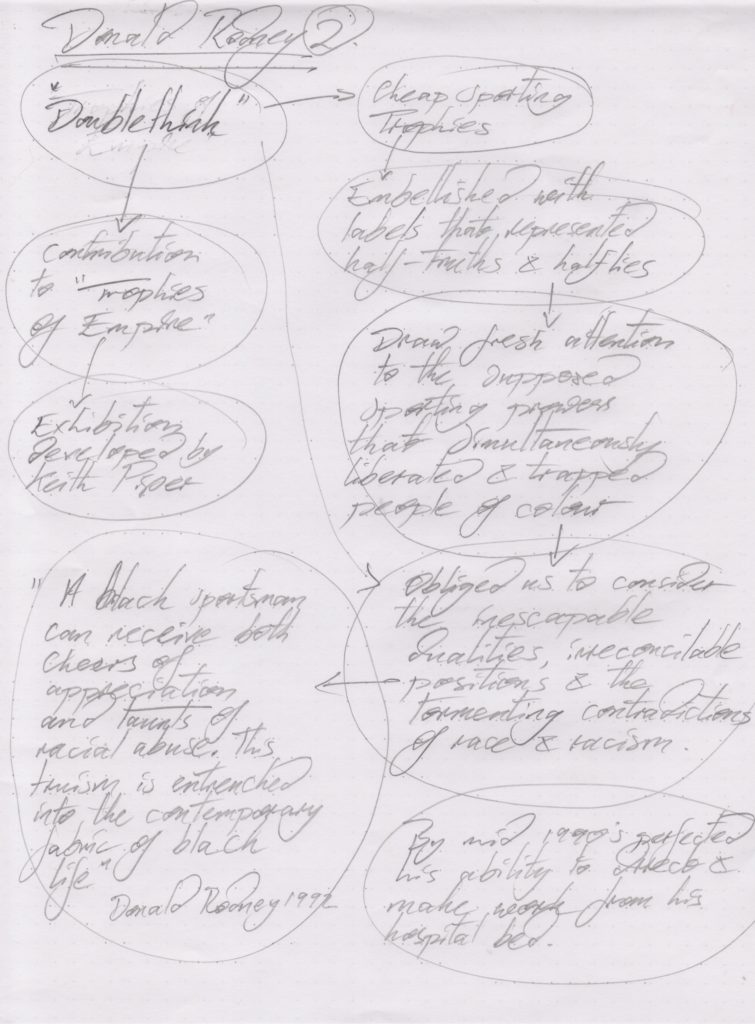 Donald Rodney 2.
"Doublethink"
Cheap Sporting
Trophies
Embellished with
labels that represented
half-truths & half lies
Contribution
to "Trophies
of Empire"
Draw fresh attention
to the supposed
sporting prowess
that simultaneously
liberated & trapped
people of colour
Exhibition
developed by
Keith Piper
Obliged us to consider
the inescapable
dualities, irreconcilable
positions & the
tormenting contradictions
of race & racism.
"A black sportsman
can receive both
cheers of
appreciation
and taunts of
racial abuse. This
truism is entrenched
into the contemporary
fabric of black
life"
Donald Rodney 1992
By mid 1990's perfected
his ability to direct &
make work from his
hospital bed.